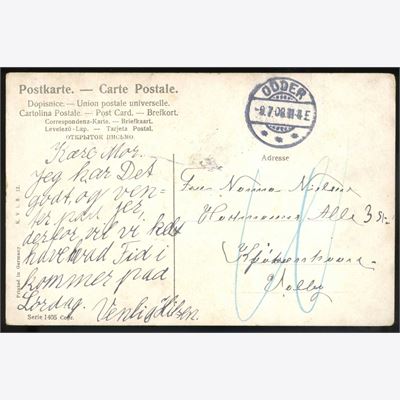 Postkarte. — Carte Postale.
Dopisnice. — Union postale universelle.
Cartolina Postale. — Post Card. — Brefkort.
Correspondenz-Karte. — Briefkaart.
Levelező-Lap. — Tarjeta Postal.
ОТКРЫТОЕ ПИСЬМО.
ODDER
9.7.08.
Adresse
Kære Mor.
Jeg har Det
godt, og ven-
ter paa Jer,
derfor vil vi
have hvad Tid i
kommer paa
Lørdag. Venlig Hilsen.
Fru Nanna Nielsen
Hartmanns Alle 3
Kjøbenhavn
Valby
Printed in Germany
Serie 1405